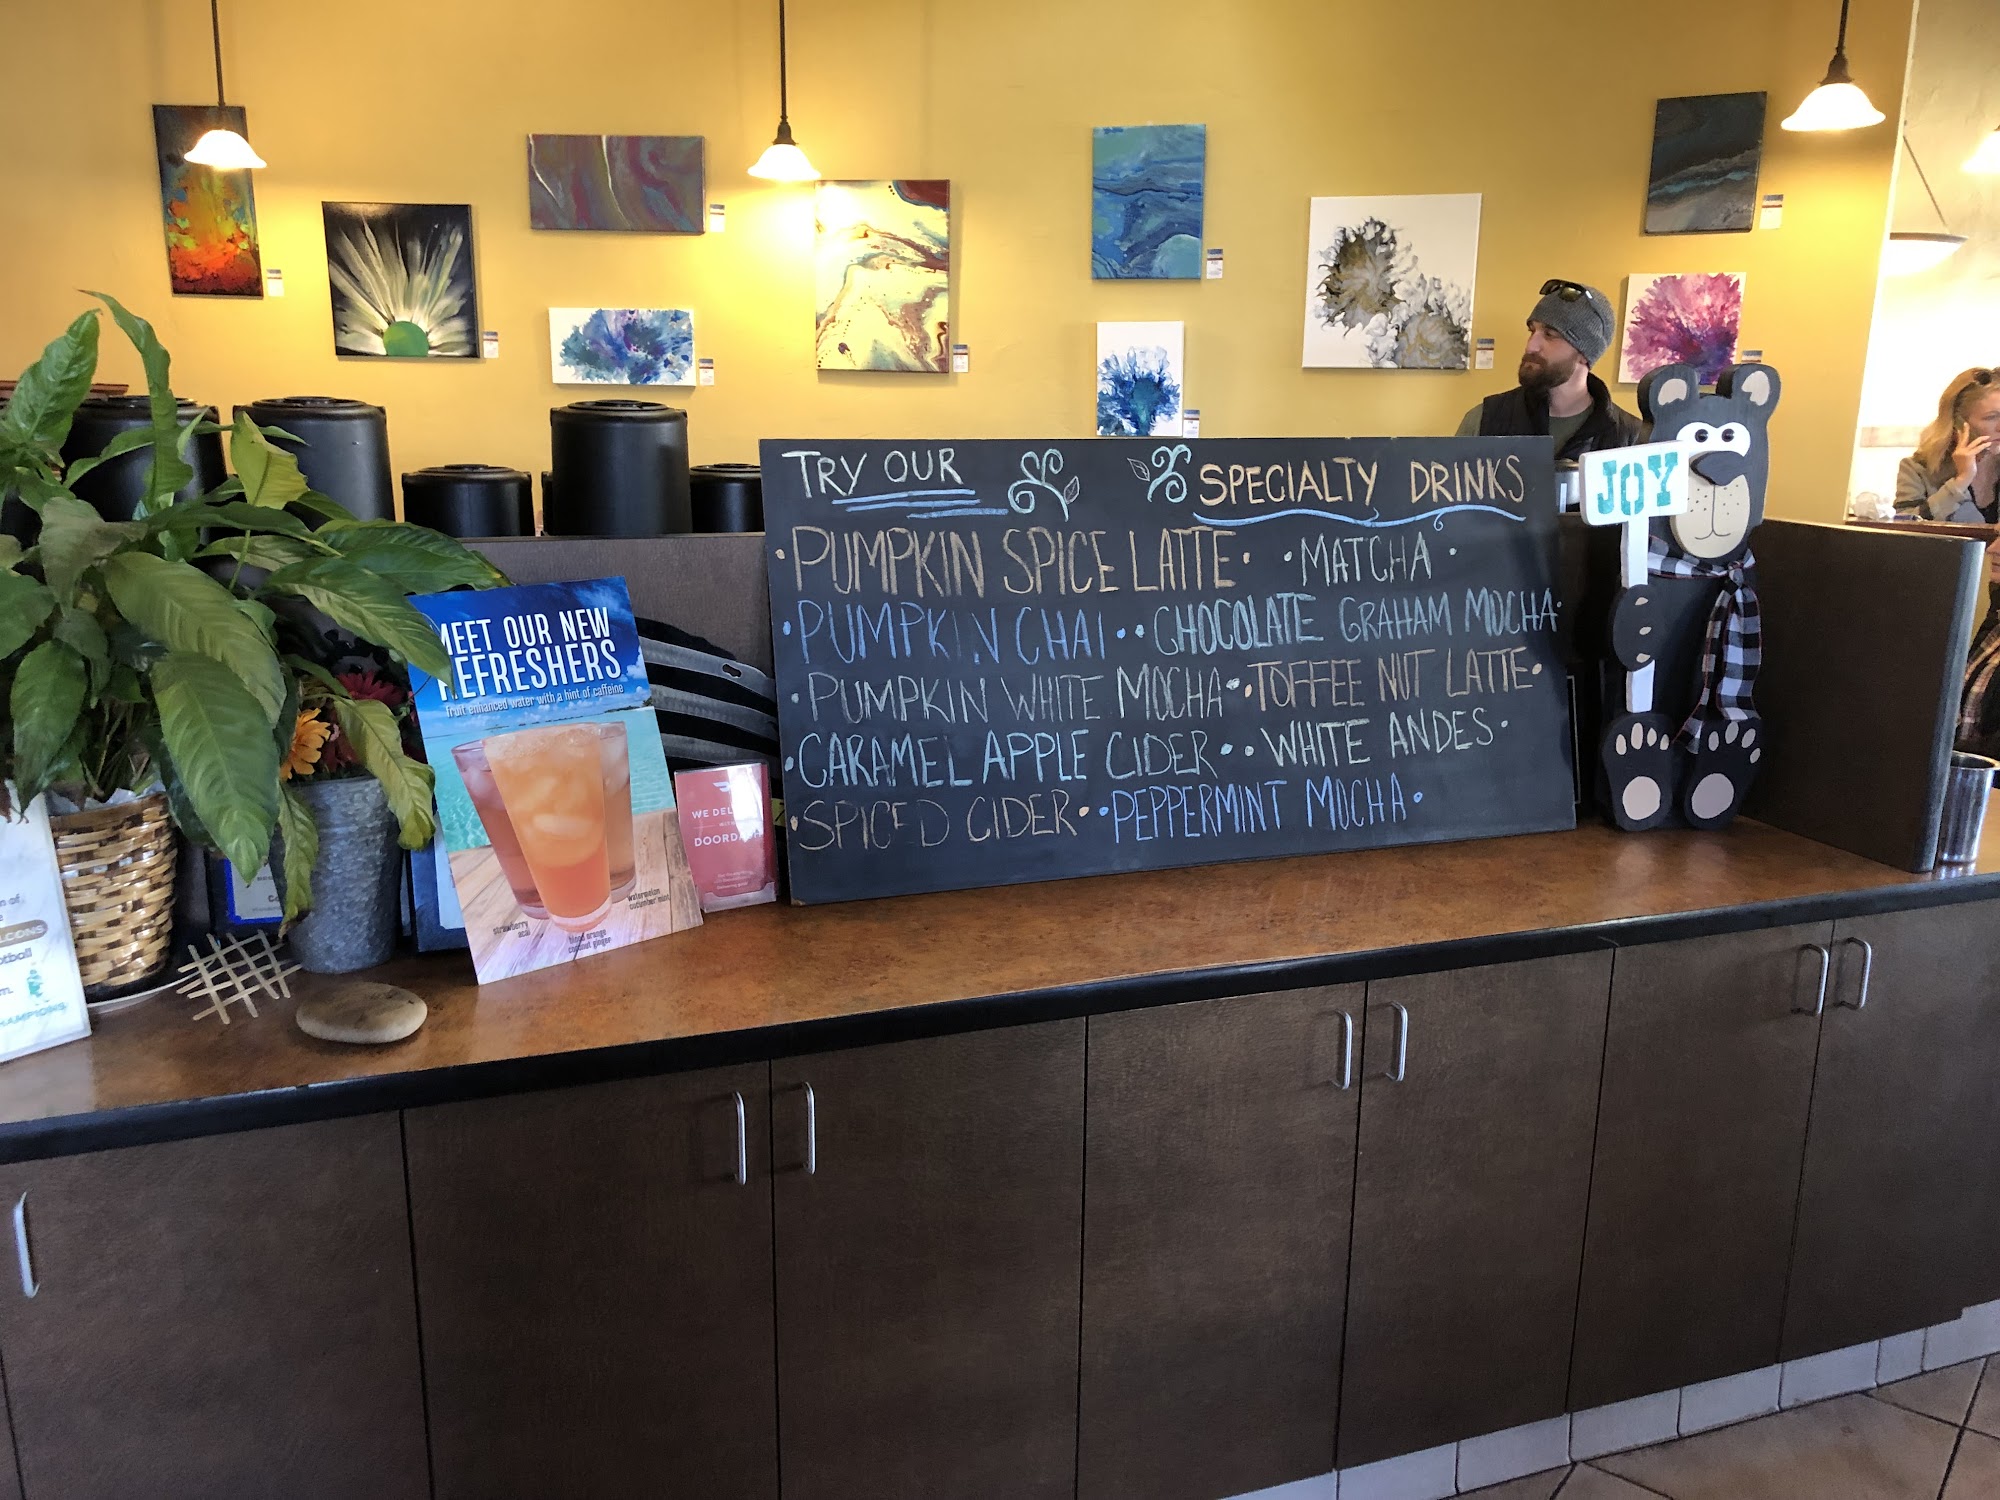 TRY OUR SPECIALTY DRINKS
• PUMPKIN SPICE LATTE • • MATCHA •
• PUMPKIN CHAI • • CHOCOLATE GRAHAM MOCHA •
• PUMPKIN WHITE MOCHA • • TOFFEE NUT LATTE •
• CARAMEL APPLE CIDER • • WHITE ANDES •
• SPICED CIDER • • PEPPERMINT MOCHA •
JOY
MEET OUR NEW
REFRESHERS
fruit enhanced water with a hint of caffeine
strawberry
acai
blood orange
coconut ginger
watermelon
cucumber mint
WE DEL
DOORDASH
of
LCONS
otball
HAMPIONS